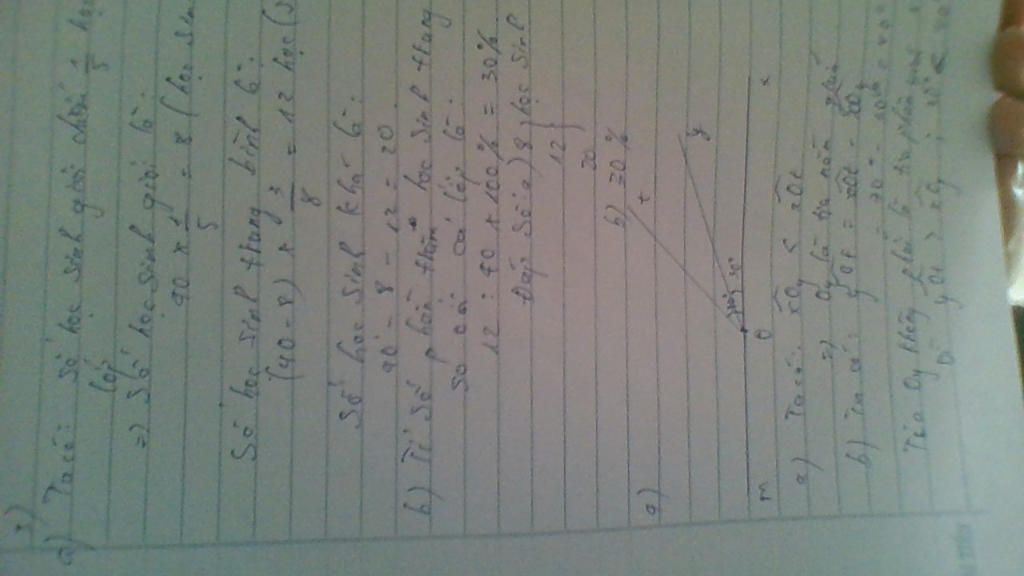 a) Ta có: Số học sinh giỏi chiếm 1/5 học
lớp
=> Số học sinh giỏi là:
40 x 1/5 = 8 (học sin
Số học sinh trung bình là:
(40 - 8) x 3/8 = 12 học (S
Số học sinh khá là:
40 - 8 - 12 = 20
b) Tỉ số phần trăm học sinh trung
so với cả lớp là:
12 : 40 x 100% = 30%
Đáp số: a) 8 học sinh
12
20
b) 30%
a)
t
y
m
O
x
a) Ta có: xOy < xOt
=> Oy là tia nằm giữa
b) Ta có: yOt = xOt - xOy
Tia Oy không phải là tia phân giác
vì yOt > xOy